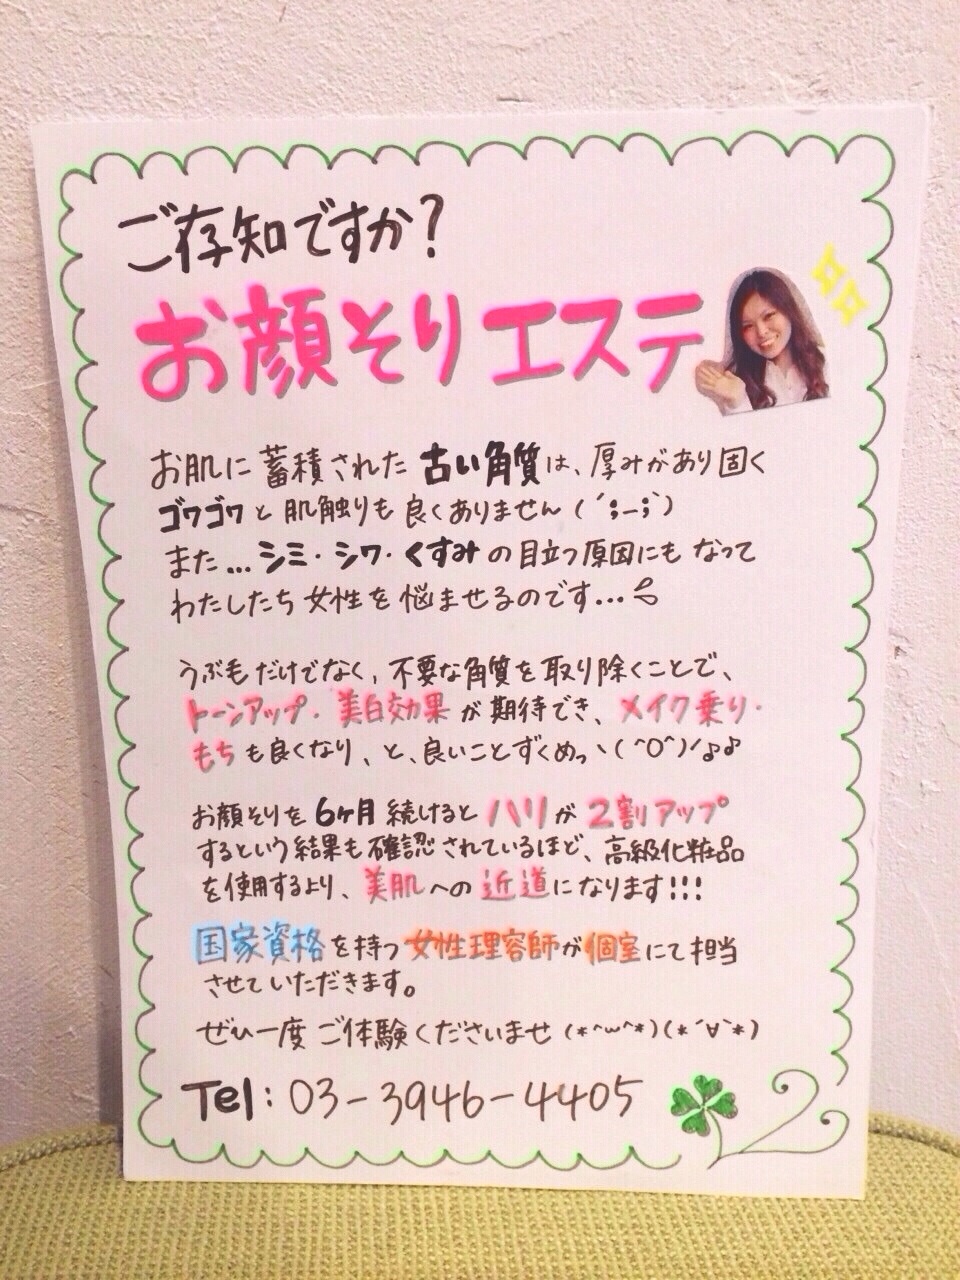 ご存知ですか？
お顔そりエステ
お肌に蓄積された古い角質は、厚みがあり固く
ゴワゴワと肌触りも良くありません(´;_;`)
また...シミ・シワ・くすみの目立つ原因にもなって
わたしたち女性を悩ませるのです...
うぶ毛だけでなく、不要な角質を取り除くことで、
トーンアップ・美白効果が期待でき、メイク乗り・
もちも良くなり、と、良いことずくめっヽ(^O^)ノ♪♪
お顔そりを6ヶ月続けるとハリが2割アップ
するという結果も確認されているほど、高級化粧品
を使用するより、美肌への近道になります!!!
国家資格を持つ女性理容師が個室にて担当
させていただきます。
ぜひ一度ご体験くださいませ(*^ω^*)(*´∀`*)
Tel:03-3946-4405